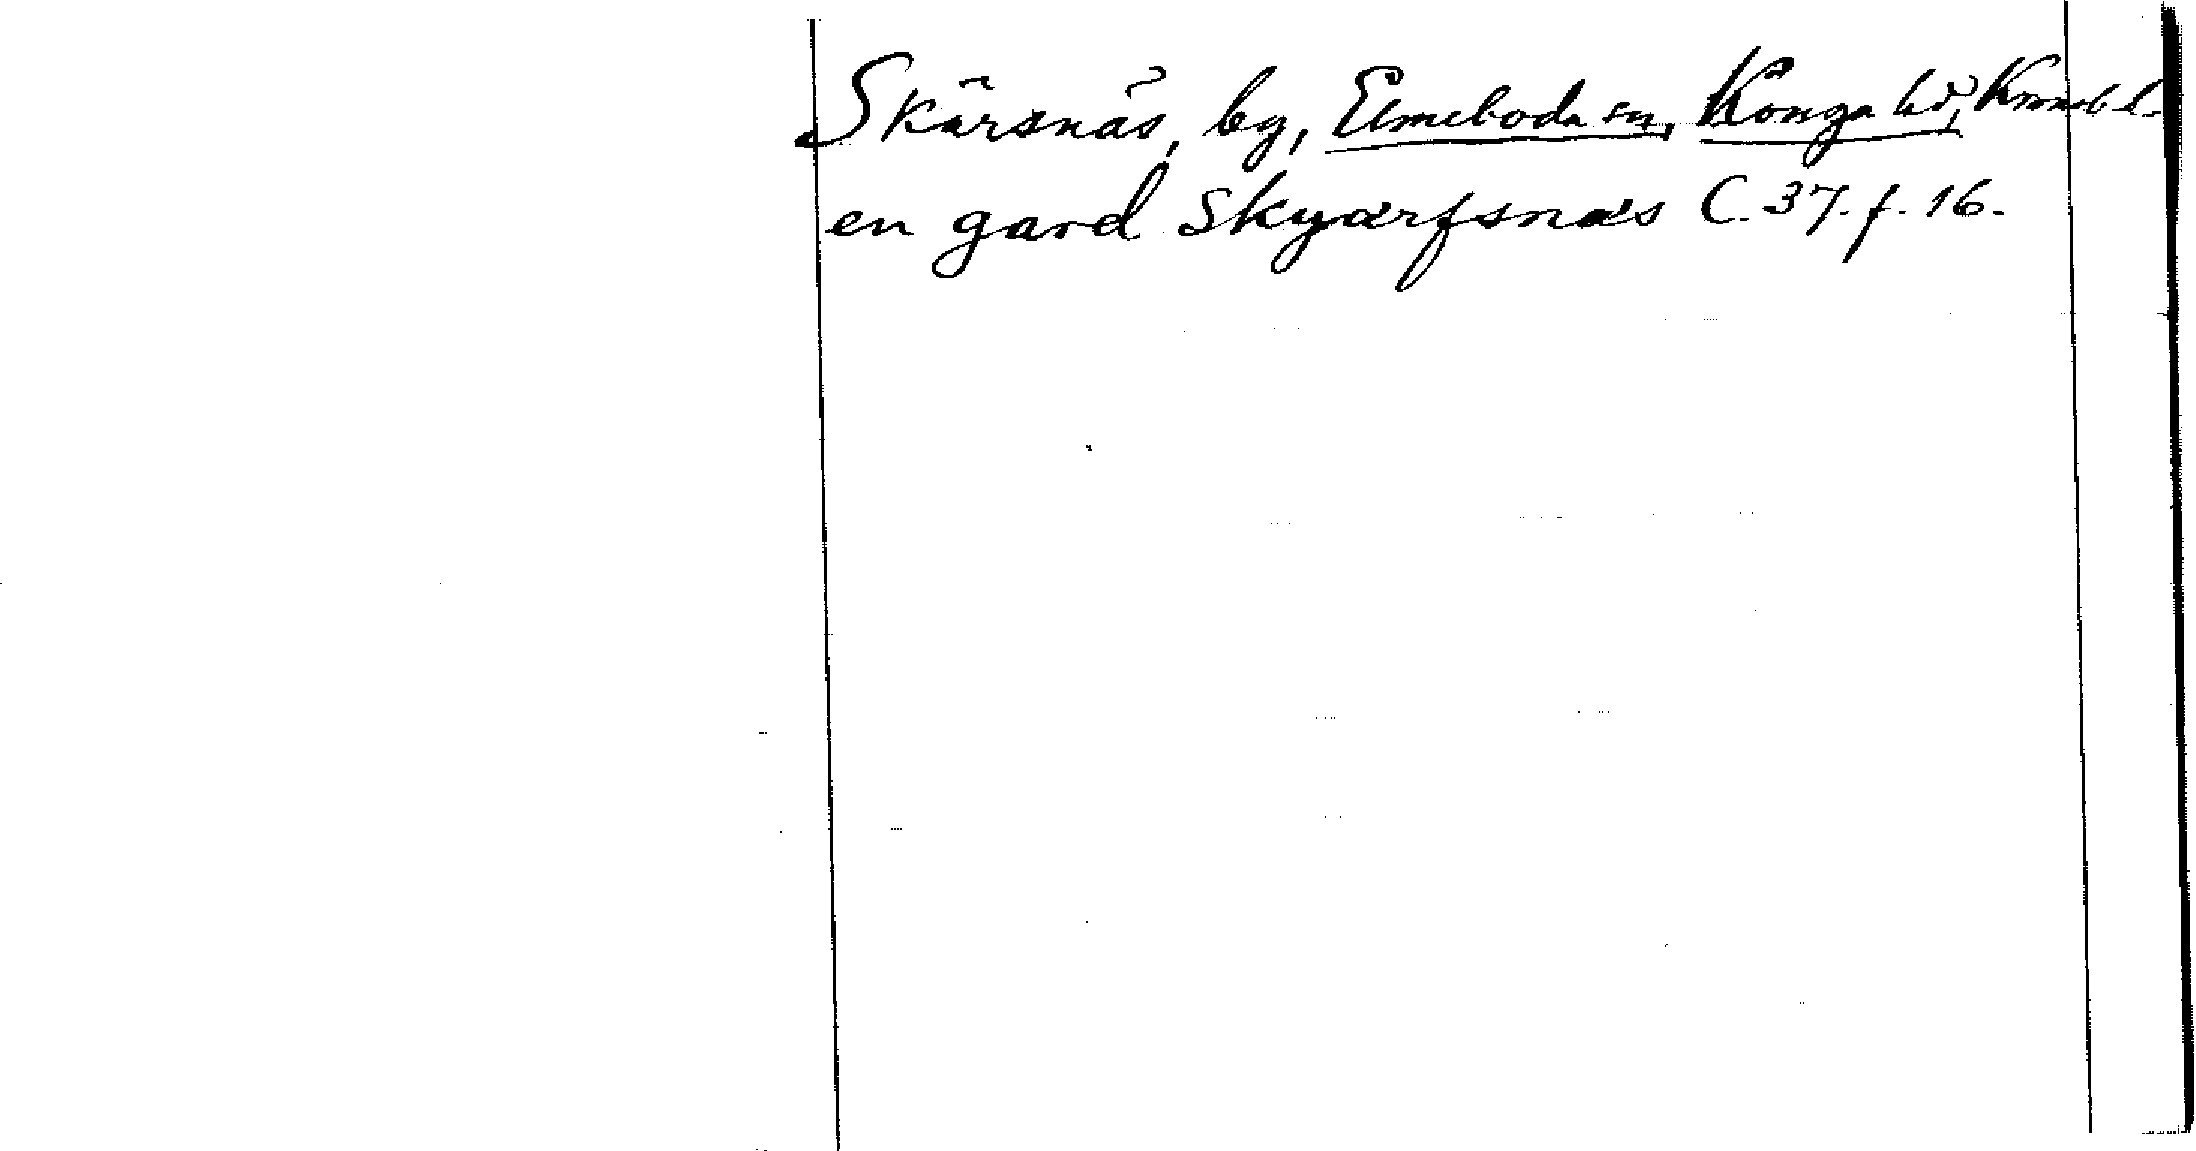 Skärsnäs, by, Elmeboda sn, Konga hd, Kronob l.
en gard Skyærfsnæs C. 37. f. 16.